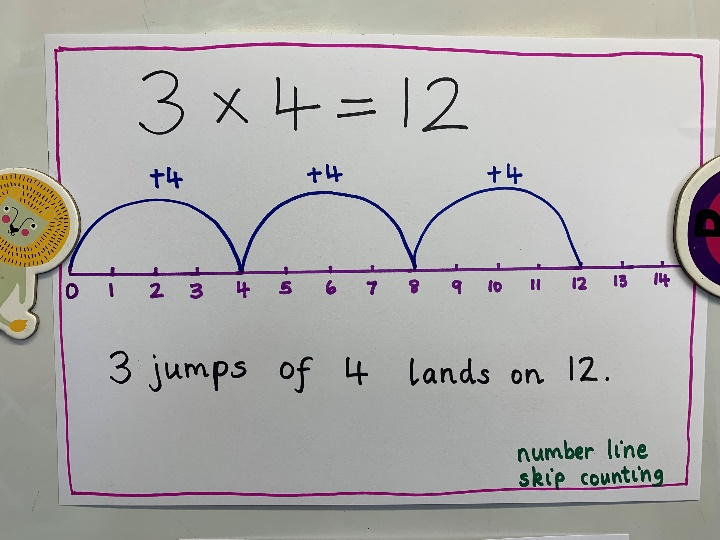 3 × 4 = 12
+4 +4 +4
0 1 2 3 4 5 6 7 8 9 10 11 12 13 14
3 jumps of 4 lands on 12.
number line
skip counting